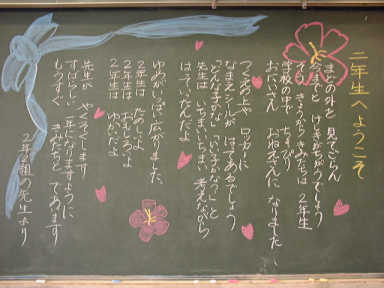 二年生へようこそ
まどの外を 見てごらん
今までと けしきがちがうでしょう
そう きょうからきみたちは 2年生
学校の中で ちょっぴり
おにいさん おねえさんに なりました
つくえの上や ロッカーに
なまえシールが はってあるでしょう
どんな子かな いい子かなっと
先生は いちまいいちまい 考えながら
はっていたんだよ
ゆめがいっぱい広がりました
2年生は たのしいよ
2年生は おもしろいよ
2年生は ゆかいだよ
先生が やくそくします
すばらしい 年になりますように
もうすぐ きみたちと であえます
2年2組の先生より